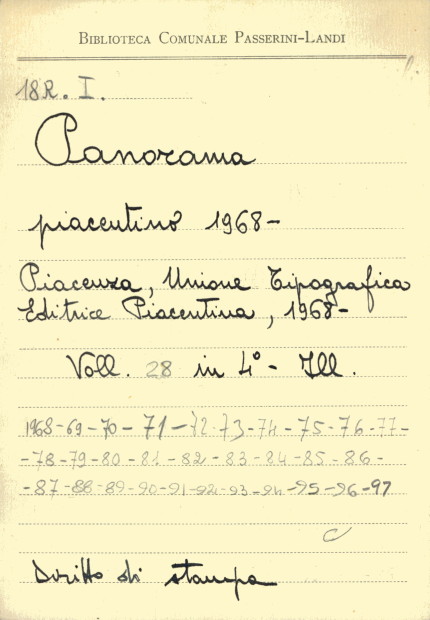 BIBLIOTECA COMUNALE PASSERINI-LANDI
18R. I.
Panorama
piacentino 1968-
Piacenza, Unione Tipografica
Editrice Piacentina, 1968-
Voll. 28 in 4° - Ill.
1968-69-70-71-72-73-74-75-76-77-
-78-79-80-81-82-83-84-85-86-
-87-88-89-90-91-92-93-94-95-96-97
C
Diritto di stampa